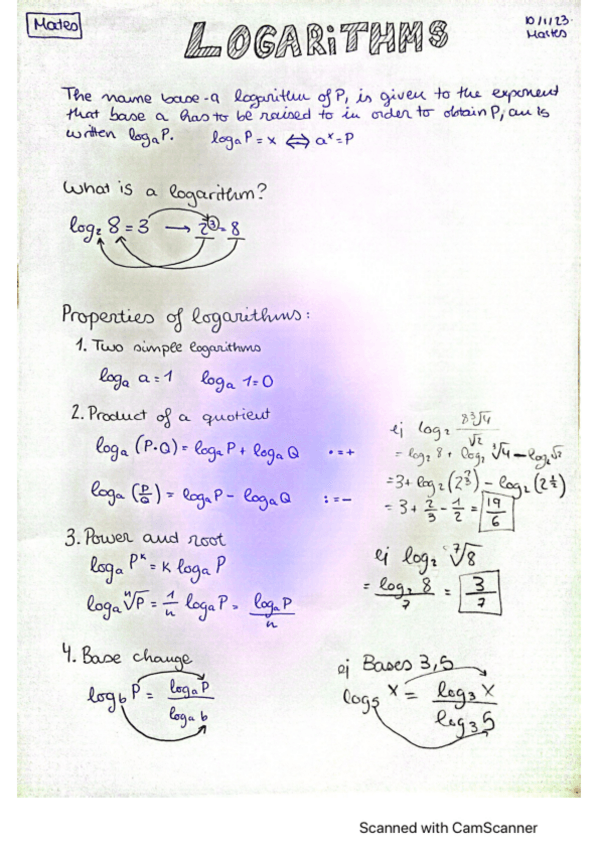 Mates
LOGARiTHMS
10/1/23
Martes
The name base-a logarithm of P, is given to the exponent
that base a has to be raised to in order to obtain P, an is
written logₐP. logₐP = x ⇔ aˣ = P
What is a logarithm?
log₂ 8 = 3 → 2³ = 8
Properties of logarithms:
1. Two simple logarithms
logₐ a = 1 logₐ 1 = 0
2. Product of a quotient
logₐ (P·Q) = logₐ P + logₐ Q • = +
logₐ (P/Q) = logₐ P - logₐ Q : = -
ej log₂ 8∛4/√2
= log₂ 8 + log₂ ∛4 - log₂ √2
= 3 + log₂ (2^(2/3)) - log₂ (2^(1/2))
= 3 + 2/3 - 1/2 = 19/6
3. Power and root
logₐ Pᴷ = K logₐ P
logₐ ⁿ√P = 1/n logₐ P = logₐ P/n
ej log₂ ⁷√8
= log₂ 8/7 = 3/7
4. Base change
log_b P = logₐ P/logₐ b
ej Bases 3, 5
log₅ x = log₃ x/log₃ 5
Scanned with CamScanner